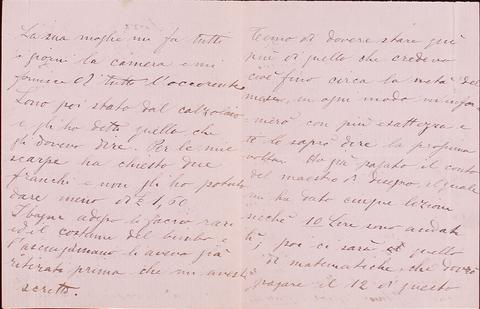 La sua moglie mi fa tutto
i giorni la camera e mi
fornisce di tutto l'occorrente.
Sono poi stato dal calzolaio
e gli ho detto quello che
gli dovevo dire. Per le mie
scarpe ha chiesto due
franchi e non gli ho potuto
dare meno di £ 1,50.
I bagni adopo li faccio rari
ed il costume del bimbo e
l'asciugamano li aveva già
ritirati prima che mi avesti
scritto.
Temo di dovere stare qui
più di quello che credevo
cioè fino circa la metà del
mese, in ogni modo m'infor
merò con più esattezza e
te lo saprò dire la prossima
volta. Ho già pagato il conto
del maestro di disegno, il quale
mi ha dato cinque lezioni
sicchè 10 Lire sono andate
poi ci sarà quello
di matematiche, che dovrò
pagare il 12 di questo